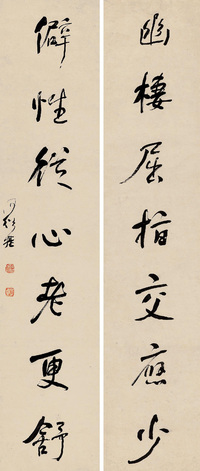 幽棲屈指交應少
僻性從心老更舒